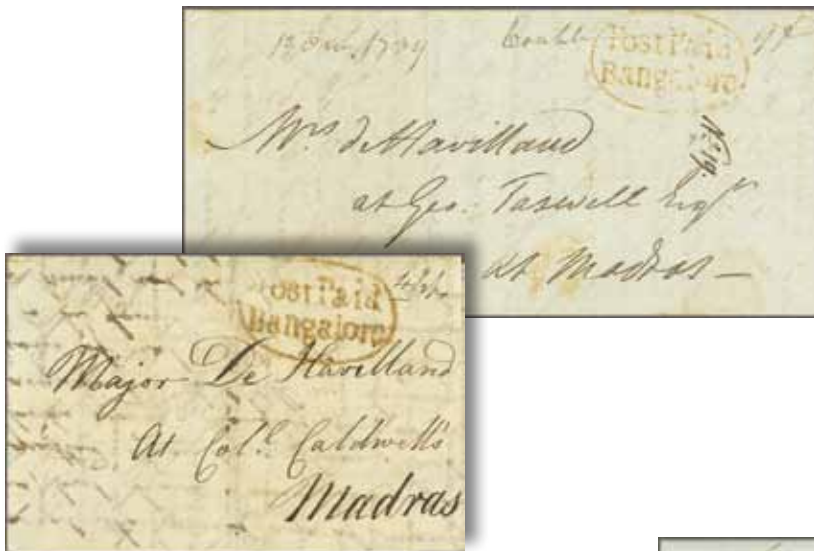 Double
Post Paid
Bangalore
No. 19.
Mrs. de Havilland
at Geo. Taswell Esqr
at Madras —
Post Paid
Bangalore
Major De Havilland
At Col.l Caldwell's
Madras